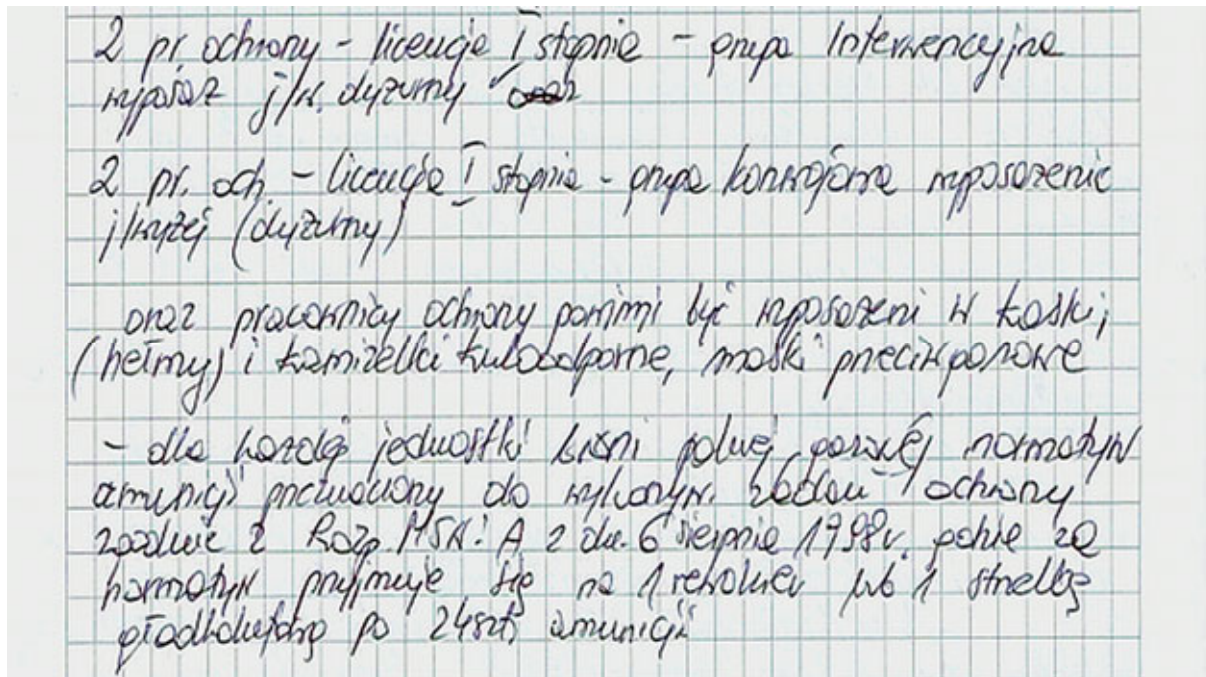 2 pr. ochrony - licencja I stopnia - grupa Interwencyjna
wyposaż j/w. dyżurny
2 pr. och. - licencja I stopnia - grupa konwojowa wyposażenie
j/wyżej (dyżurny)
oraz pracownicy ochrony powinni być wyposażeni w kaski,
(hełmy) i kamizelki kuloodporne, maski przeciwgazowe
- dla każdej jednostki broni palnej normatyw
amunicji do wykonyw. zadań ochrony
zgodnie z Rozp. MSWiA z dn. 6 sierpnia 1998r. gdzie za
normatyw przyjmuje się na 1 rewolwer lub 1 strzelbę
gładkolufową po 24szt. amunicji